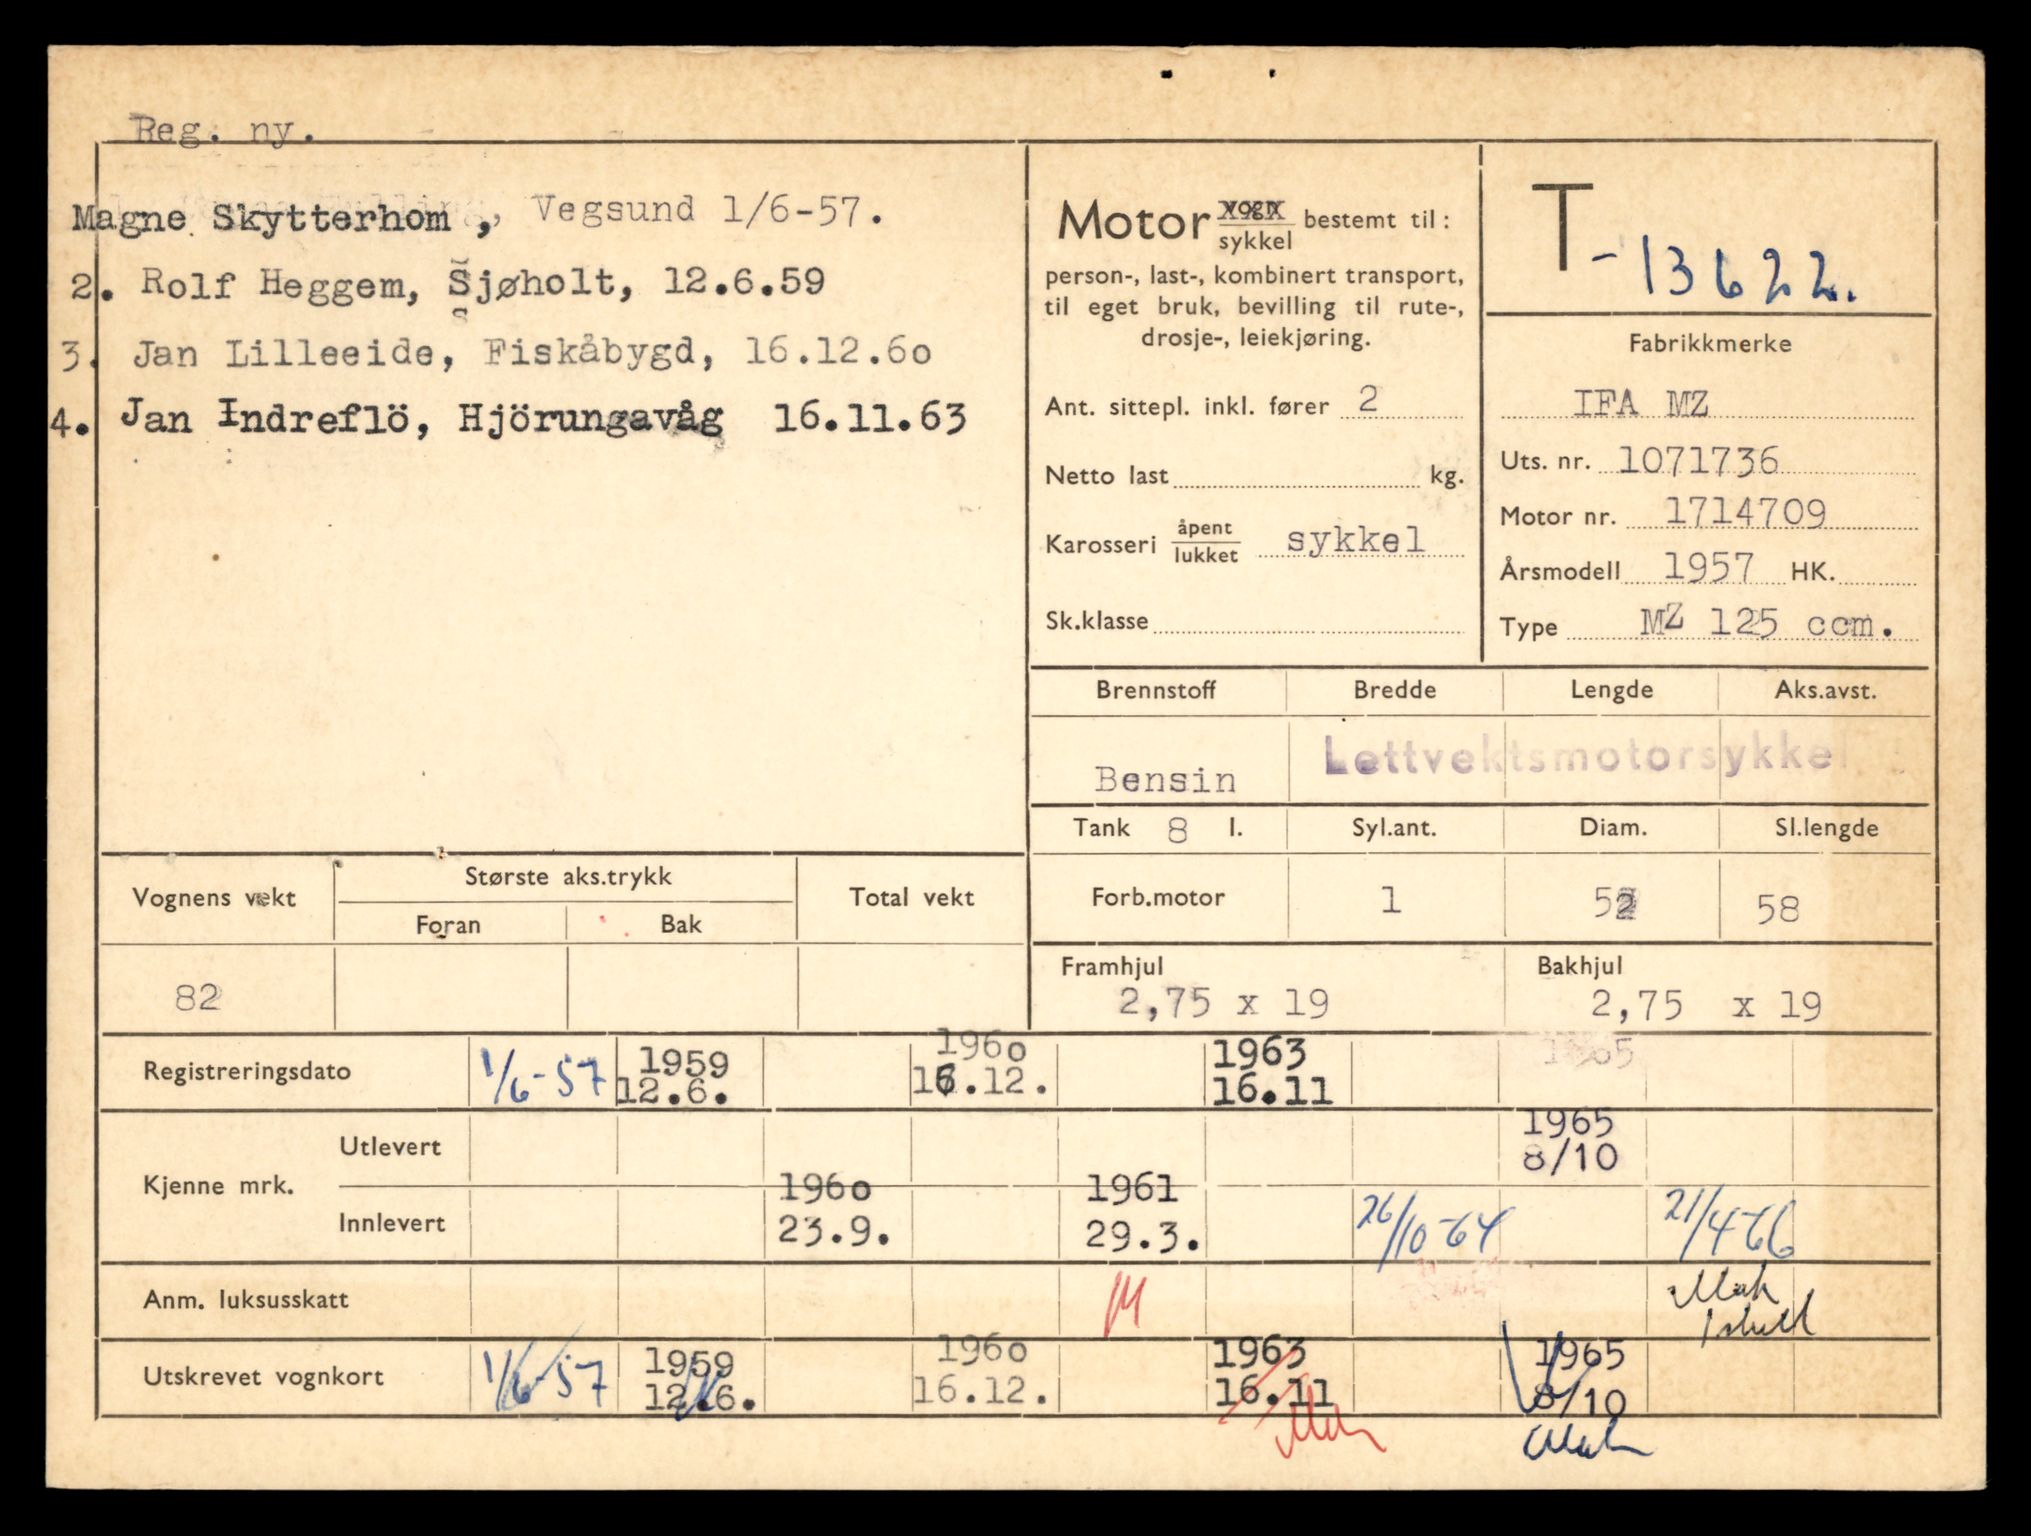 Reg. ny.
Magne Skytterhom , Vegsund 1/6-57.
2. Rolf Heggem, Sjøholt, 12.6.59
3. Jan Lilleeide, Fiskåbygd, 16.12.60
4. Jan Indreflö, Hjörungavåg 16.11.63
Motor vogn
sykkel bestemt til:
person-, last-, kombinert transport,
til eget bruk, bevilling til rute-,
drosje-, leiekjøring.
Ant. sittepl. inkl. fører 2
Netto last kg.
Karosseri åpent
lukket sykkel
Sk.klasse
T-13622.
Fabrikkmerke
IFA MZ
Uts. nr. 1071736
Motor nr. 1714709
Årsmodell 1957 HK.
Type MZ 125 ccm.
Brennstoff Bredde Lengde Aks.avst.
Bensin Lettvektsmotorsykkel
Tank 8 l. Syl.ant. Diam. Sl.lengde
Forb.motor 1 52 58
Framhjul Bakhjul
2,75 x 19 2,75 x 19
Vognens vekt Største aks.trykk Total vekt
Foran Bak
82
Registreringsdato 1/6-57 1959 1960 1963 1965
12.6. 16.12. 16.11
Kjenne mrk. Utlevert 1965
8/10
Innlevert 1960 1961
23.9. 29.3. 26/10-64 21/4-66
Anm. luksusskatt
Utskrevet vognkort 1/6-57 1959 1960 1963 1965
12.6. 16.12. 16.11 8/10